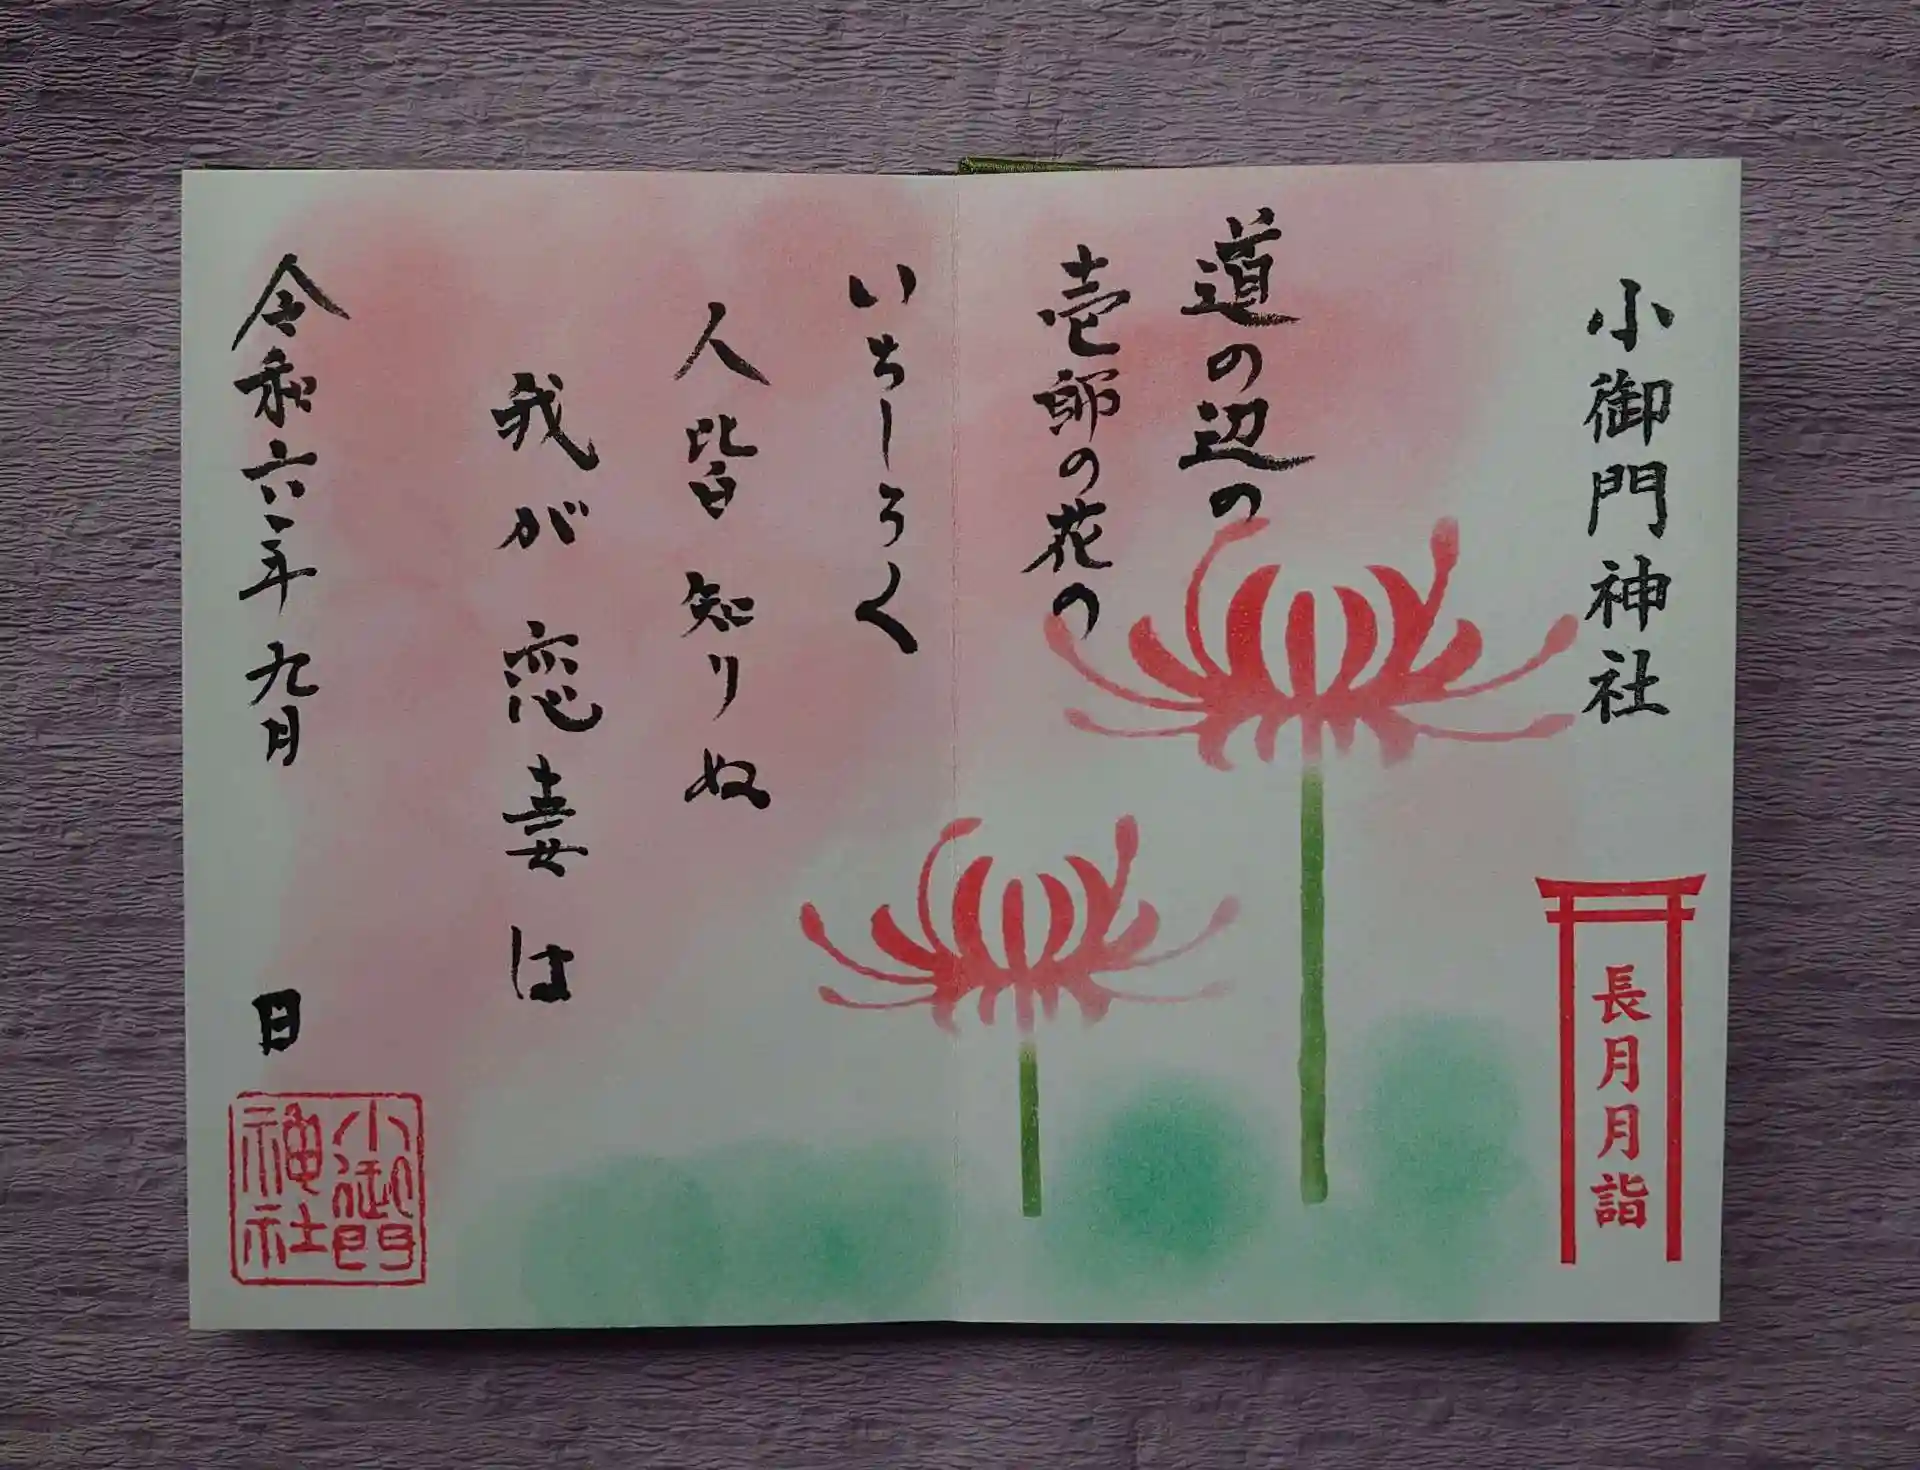 小御門神社
長月月詣
道の辺の
壱師の花の
いちしろく
人皆知りぬ
我が恋妻は
令和六年九月 日
小御門神社